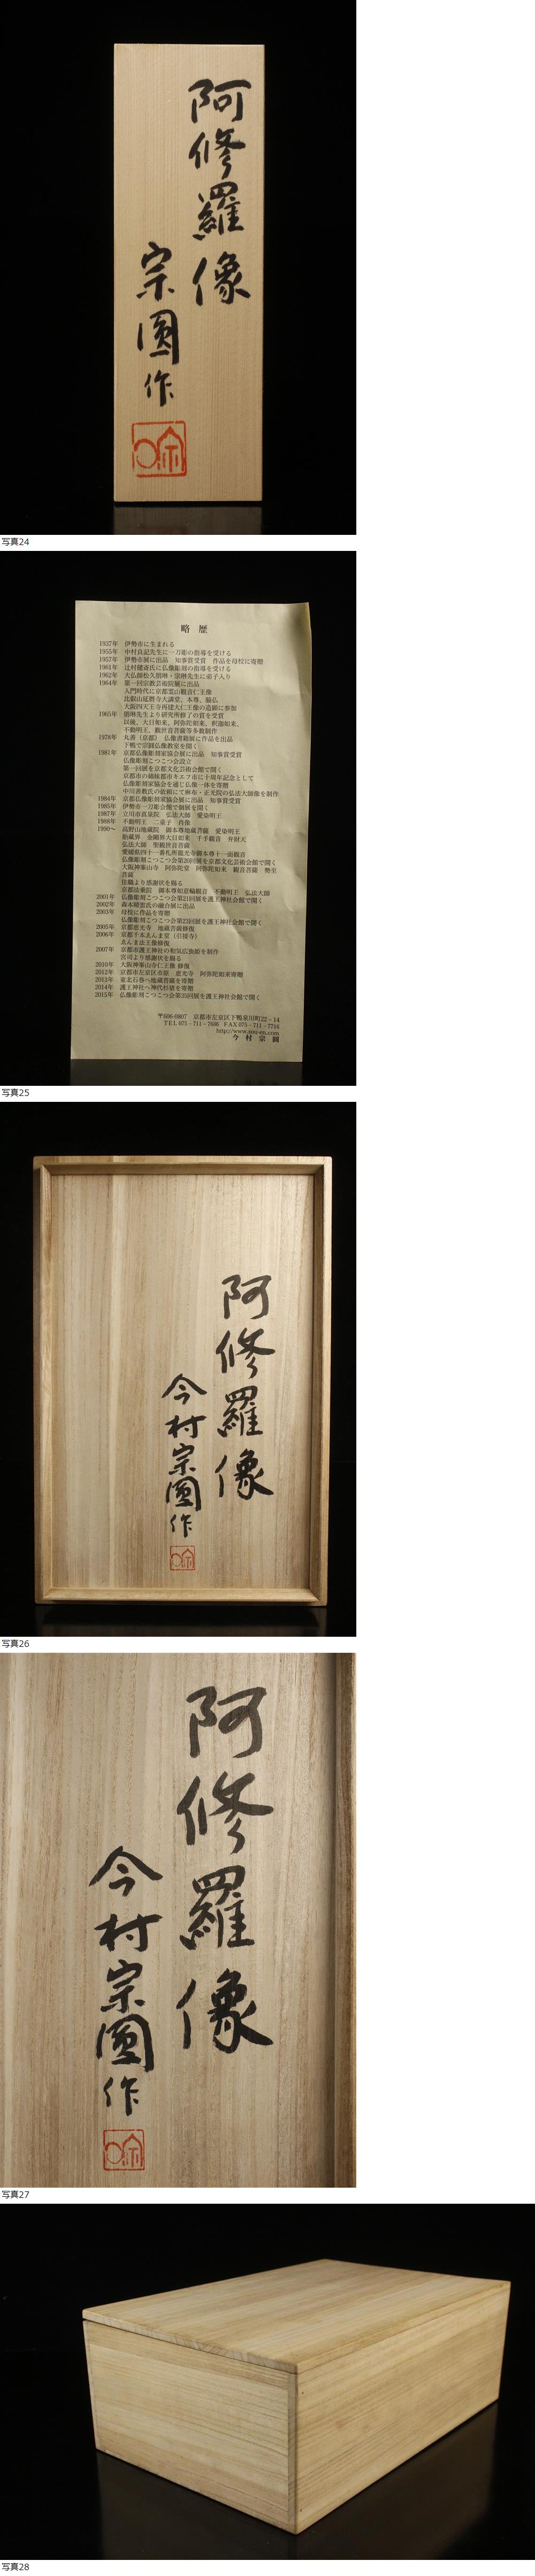 阿修羅像
宗圓作
写真24
略歴
1937年 伊勢市に生まれる
1955年 中村良記先生に一刀彫の指導を受ける
1957年 伊勢市展に出品 知事賞受賞 作品を母校に寄贈
1961年 辻村健斎氏に仏像彫刻の指導を受ける
1962年 大仏師松久朋琳・宗琳先生に弟子入り
1964年 第一回宗教芸術院展に出品
入門時代に京都霊山観音仁王像
比叡山延暦寺大講堂、本尊、脇仏
大阪四天王寺再建大仁王像の造顕に参加
1965年 朋琳先生より研究所修了の賞を受賞
以後、大日如来、阿弥陀如来、釈迦如来、
不動明王、観世音菩薩等多数制作
1978年 丸善（京都） 仏像書籍展に作品を出品
下鴨で宗圓仏像教室を開く
1981年 京都仏像彫刻家協会展に出品 知事賞受賞
仏像彫刻こつこつ会設立
第一回展を京都文化芸術会館で開く
京都市の姉妹都市キエフ市に十周年記念として
仏像彫刻家協会を通じ仏像一体を寄贈
中川善教氏の依頼にて麻布・正光院の弘法大師像を制作
1984年 京都仏像彫刻家協会展に出品 知事賞受賞
1985年 伊勢市一刀彫会館で個展を開く
1987年 立川市真泉院 弘法大師 愛染明王
1988年 不動明王 二童子 肖像
1990〜 高野山地蔵院 御本尊地蔵菩薩 愛染明王
胎蔵界 金剛界大日如来 千手観音 弁財天
弘法大師 聖観世音菩薩
愛媛県四十一番札所龍光寺御本尊十一面観音
仏像彫刻こつこつ会第20回展を京都文化芸術会館で開く
大阪神峯山寺 阿弥陀堂 阿弥陀如来 観音菩薩 勢至
菩薩
住職より感謝状を賜る
京都法楽院 御本尊如意輪観音 不動明王 弘法大師
2001年 仏像彫刻こつこつ会第21回展を護王神社会館で開く
2002年 森本穫雲氏の融合展に出品
2003年 母校に作品を寄贈
仏像彫刻こつこつ会第23回展を護王神社会館で開く
2005年 京都恵光寺 地蔵菩薩修復
2006年 京都千本ゑんま堂（引接寺）
ゑんま法王像修復
2007年 京都市護王神社の和気広虫姫を制作
宮司より感謝状を賜る
2010年 大阪神峯山寺仁王像 修復
2012年 京都市左京区市原 恵光寺 阿弥陀如来寄贈
2013年 東北石巻へ地蔵菩薩を寄贈
2014年 護王神社へ神代杉猪を寄贈
2015年 仏像彫刻こつこつ会第35回展を護王神社会館で開く
〒606-0807 京都市左京区下鴨泉川町22－14
TEL 075－711－7686 FAX 075－711－7716
http://www.sou-en.com
今村宗圓
写真25
阿修羅像
今村宗圓作
写真26
阿修羅像
今村宗圓作
写真27
写真28